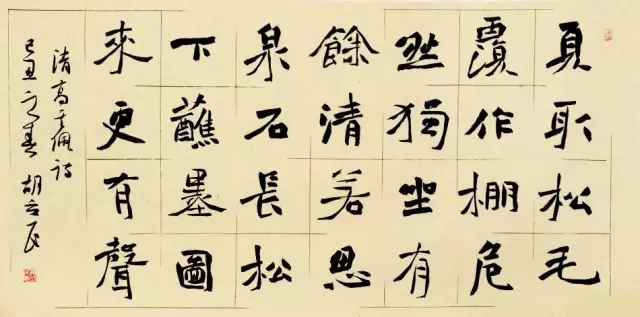 夏取松毛
覆作棚危
然獨坐有
餘清若思
泉石長松
下蘸墨圖
來更有聲
清高其佩詩
己丑之春 胡立民